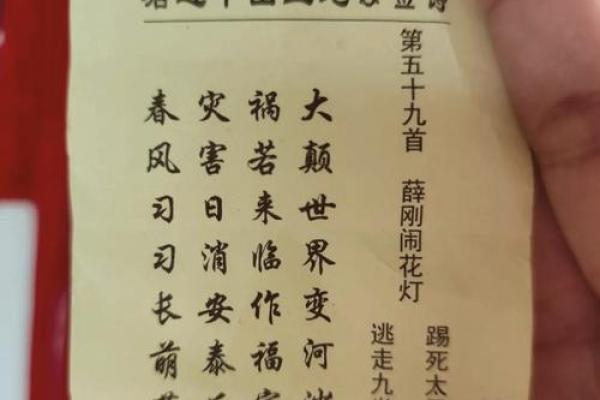 签诗
第五十九首 薛刚闹花灯
踢死太
逃走九
大颠世界变河
祸若来临作福
灾害日消安泰
春风习习长萌